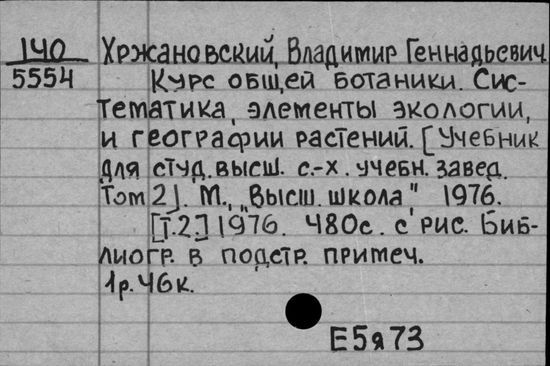 140 Хржановский, Владимир Геннадьевич.
5554 Курс общей ботаники. Сис-
тематика, элементы экологии,
и географии растений. [Учебник
для студ. высш. с.-х. учебн. завед.
Том 2]. М., „Высш. школа" 1976.
[т.2.] 1976. 480с. с рис. Биб-
лиогр. в подстр. примеч.
1р.46к.
Е5я73